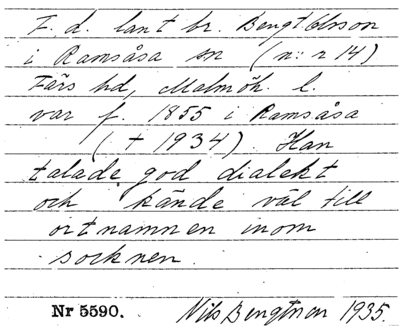 F. d. lantbr. Bengt Olsson
i Ramsåsa sn (n:r 14)
Färs hd, Malmöh. l.
var f. 1855 i Ramsåsa
(† 1934). Han
talade god dialekt
och kände väl till
ortnamnen inom
socknen.
Nr 5590. Nils Bengtsson 1935.